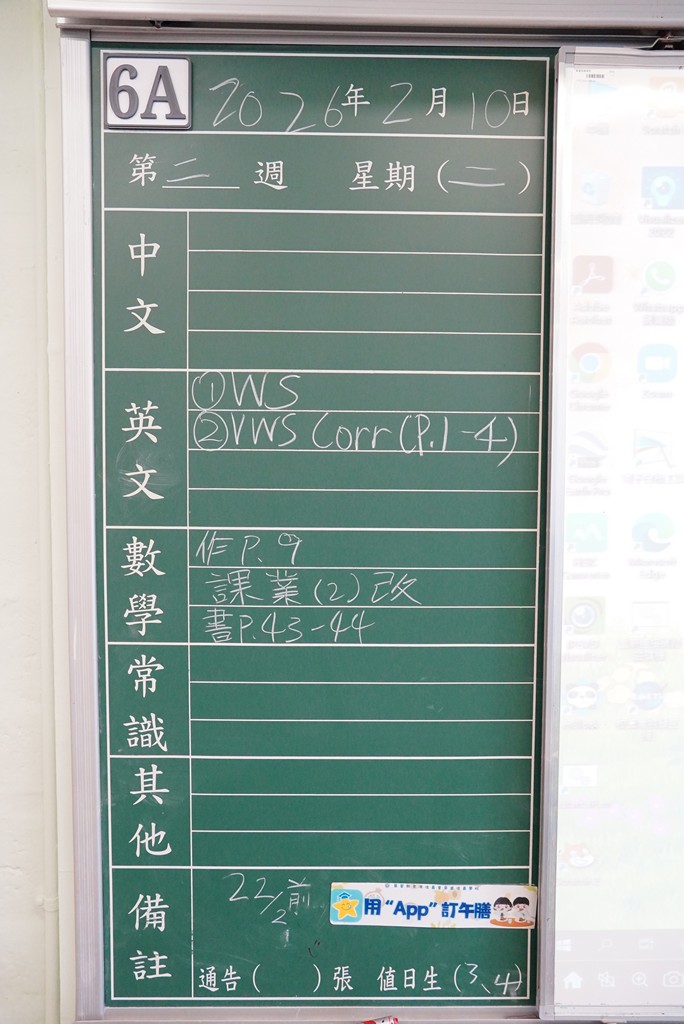 6A 2026年2月10日
第二週 星期(二)
中文
英文
①WS
②VWS Corr(P.1-4)
數學
作P.9
課業(2)改
書P.43-44
常識
其他
備註
22/2前
用“App”訂午膳
通告( )張 值日生(3、4)